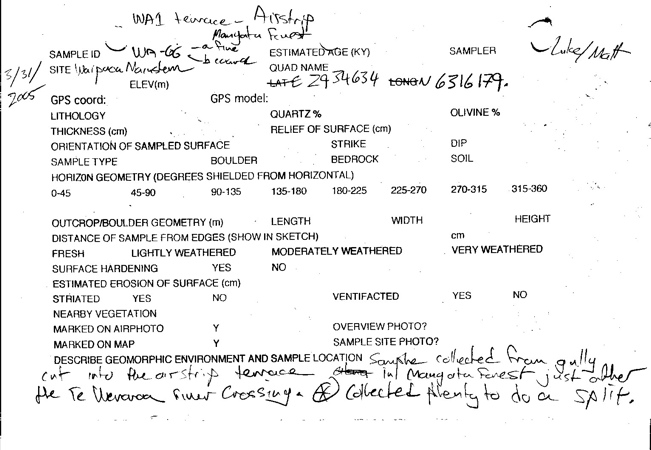 WA1 terrace - Airstrip
Mangatu Forest
SAMPLE ID WA-66 - a fine ESTIMATED AGE (KY) SAMPLER Luke/Matt
b coarse
3/31/2005
SITE Waipaoa Mainstem QUAD NAME
ELEV(m) LAT E 2934634 LONG N 6316179.
GPS coord: GPS model:
LITHOLOGY QUARTZ % OLIVINE %
THICKNESS (cm) RELIEF OF SURFACE (cm)
ORIENTATION OF SAMPLED SURFACE STRIKE DIP
SAMPLE TYPE BOULDER BEDROCK SOIL
HORIZON GEOMETRY (DEGREES SHIELDED FROM HORIZONTAL)
0-45 45-90 90-135 135-180 180-225 225-270 270-315 315-360
OUTCROP/BOULDER GEOMETRY (m) LENGTH WIDTH HEIGHT
DISTANCE OF SAMPLE FROM EDGES (SHOW IN SKETCH) cm
FRESH LIGHTLY WEATHERED MODERATELY WEATHERED VERY WEATHERED
SURFACE HARDENING YES NO
ESTIMATED EROSION OF SURFACE (cm)
STRIATED YES NO VENTIFACTED YES NO
NEARBY VEGETATION
MARKED ON AIRPHOTO Y OVERVIEW PHOTO?
MARKED ON MAP Y SAMPLE SITE PHOTO?
DESCRIBE GEOMORPHIC ENVIRONMENT AND SAMPLE LOCATION Sample collected from gully
cut into the airstrip terrace in Mangatu Forest just
the Te River Crossing. Collected plenty to do a SPLIT.